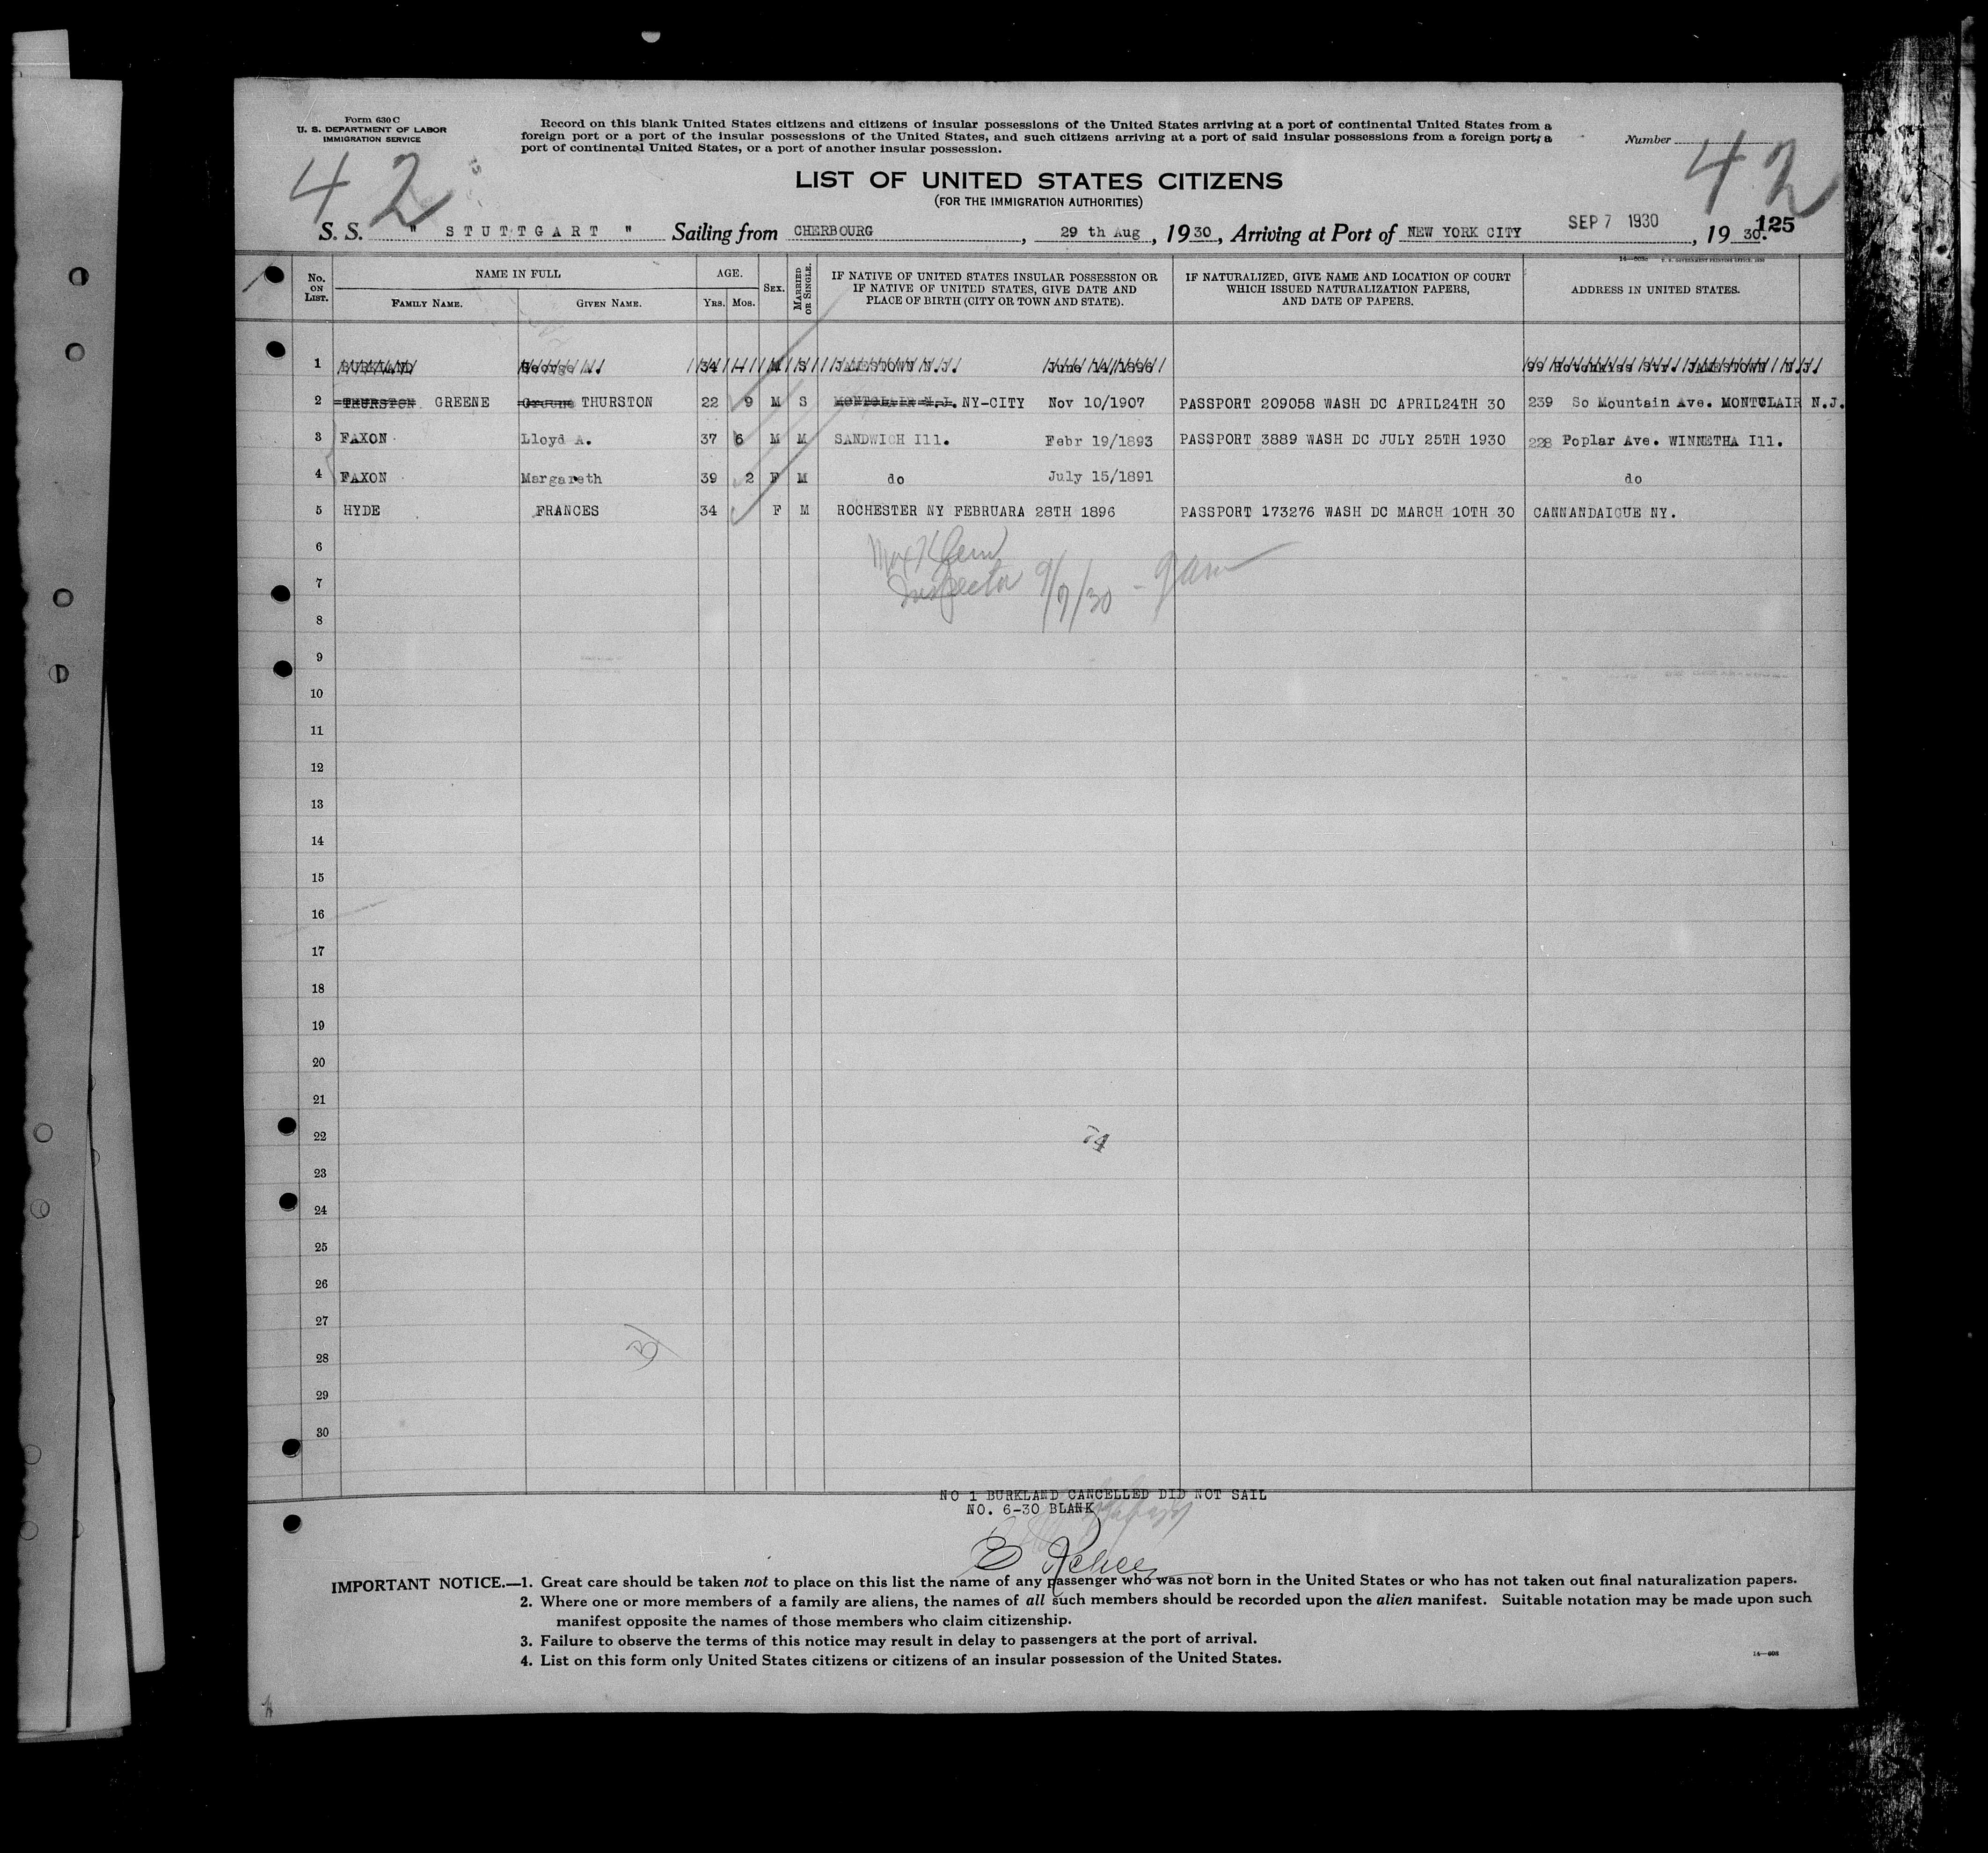 Form 630 C
U. S. DEPARTMENT OF LABOR
IMMIGRATION SERVICE
Record on this blank United States citizens and citizens of insular possessions of the United States arriving at a port of continental United States from a
foreign port or a port of the insular possessions of the United States, and such citizens arriving at a port of said insular possessions from a foreign port, a
port of continental United States, or a port of another insular possession.
Number
42
42
LIST OF UNITED STATES CITIZENS
(FOR THE IMMIGRATION AUTHORITIES)
S. S. " STUTTGART " Sailing from CHERBOURG, 29 th Aug, 1930, Arriving at Port of NEW YORK CITY SEP 7 1930, 1930. 125
No. ON LIST. NAME IN FULL AGE. SEX. MARRIED OR SINGLE. IF NATIVE OF UNITED STATES INSULAR POSSESSION OR IF NATIVE OF UNITED STATES, GIVE DATE AND PLACE OF BIRTH (CITY OR TOWN AND STATE). IF NATURALIZED, GIVE NAME AND LOCATION OF COURT WHICH ISSUED NATURALIZATION PAPERS, AND DATE OF PAPERS. ADDRESS IN UNITED STATES.
FAMILY NAME. GIVEN NAME. YRS. MOS.
1 BURKLAND George 34 M S JAMESTOWN N.J. June 14/1896 99 Hotchkiss Str. JAMESTOWN N.J.
2 THURSTON GREENE Greene THURSTON 22 9 M S MONTCLAIR N.J. NY-CITY Nov 10/1907 PASSPORT 209058 WASH DC APRIL24TH 30 239 So Mountain Ave. MONTCLAIR N.J.
3 FAXON Lloyd A. 37 6 M M SANDWICH Ill. Febr 19/1893 PASSPORT 3889 WASH DC JULY 25TH 1930 228 Poplar Ave. WINNETHA Ill.
4 FAXON Margareth 39 2 F M do July 15/1891 do
5 HYDE FRANCES 34 F M ROCHESTER NY FEBRUARA 28TH 1896 PASSPORT 173276 WASH DC MARCH 10TH 30 CANNANDAIGUE NY.
6
Inspector 9/7/30 - 9 am
7
8
9
10
11
12
13
14
15
16
17
18
19
20
21
22
23
24
25
26
27
28
29
30
NO 1 BURKLAND CANCELLED DID NOT SAIL
NO. 6-30 BLANK
IMPORTANT NOTICE.—1. Great care should be taken not to place on this list the name of any passenger who was not born in the United States or who has not taken out final naturalization papers.
2. Where one or more members of a family are aliens, the names of all such members should be recorded upon the alien manifest. Suitable notation may be made upon such
manifest opposite the names of those members who claim citizenship.
3. Failure to observe the terms of this notice may result in delay to passengers at the port of arrival.
4. List on this form only United States citizens or citizens of an insular possession of the United States.